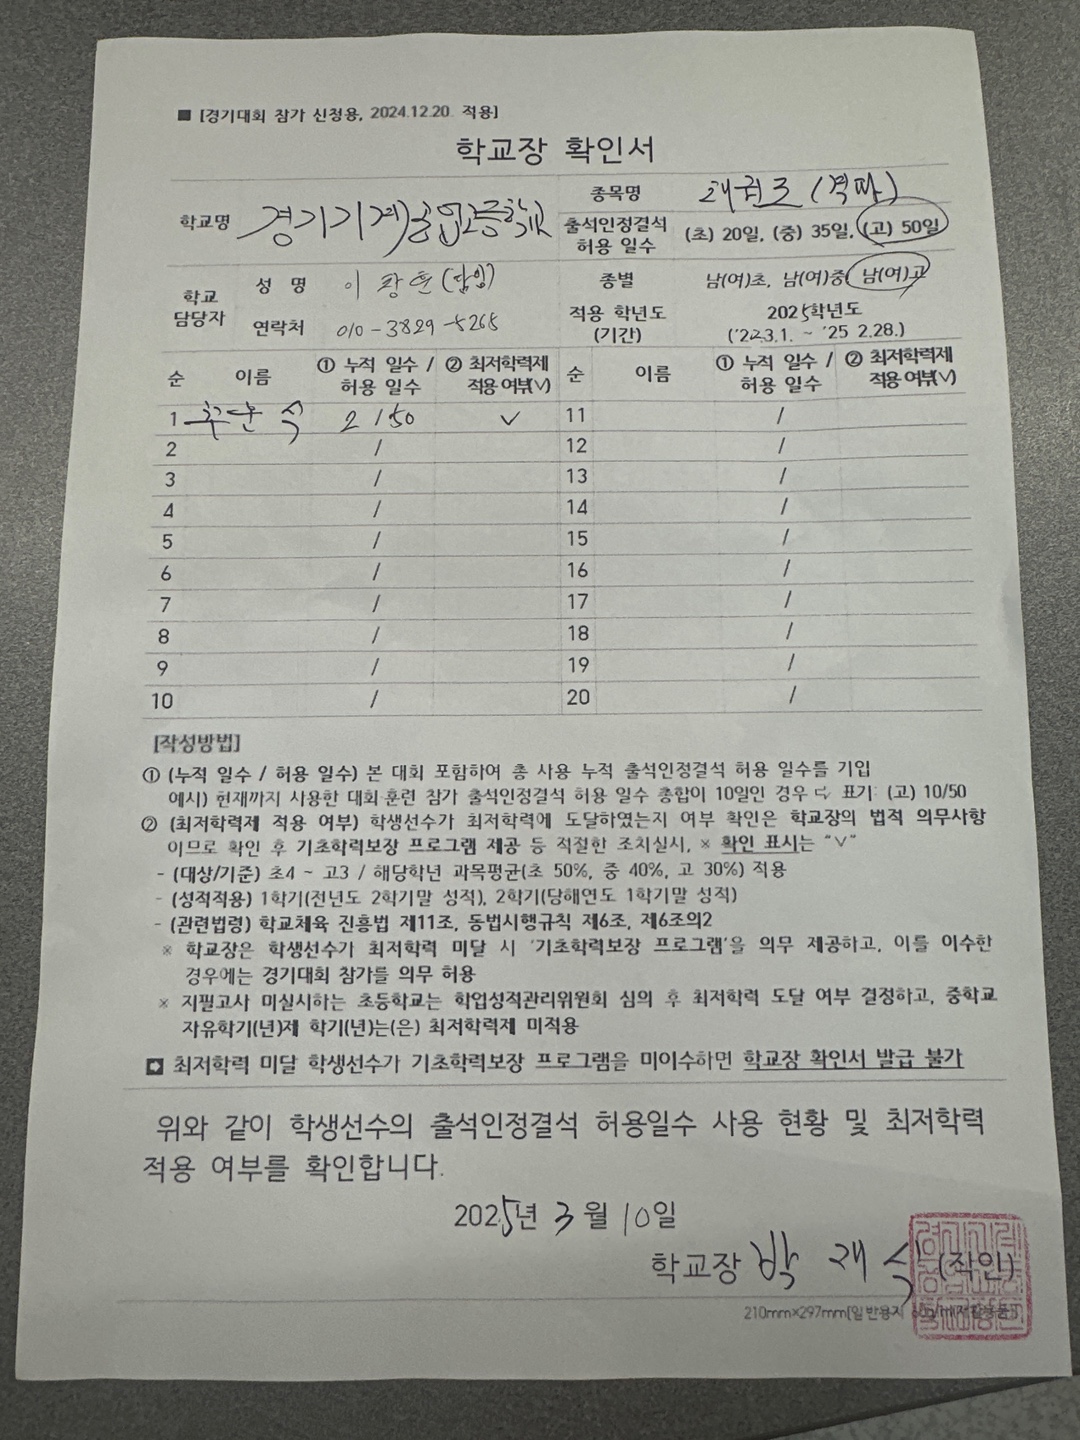 ■ [경기대회 참가 신청용, 2024.12.20. 적용]
학교장 확인서
학교명 경기기계공업고등학교
종목명 태권도(격파)
출석인정결석 허용 일수 (초) 20일, (중) 35일, (고) 50일
학교 담당자
성 명 이 창훈(담임)
종별 남(여)초, 남(여)중 남(여)고
연락처 010-3829-5265
적용 학년도 (기간) 2025학년도
('22.3.1. ~ '25 2.28.)
순 이름 ① 누적 일수 / 허용 일수 ② 최저학력제 적용 여부(∨) 순 이름 ① 누적 일수 / 허용 일수 ② 최저학력제 적용 여부(∨)
1 2 / 50 ∨ 11 /
2 / 12 /
3 / 13 /
4 / 14 /
5 / 15 /
6 / 16 /
7 / 17 /
8 / 18 /
9 / 19 /
10 / 20 /
[작성방법]
① (누적 일수 / 허용 일수) 본 대회 포함하여 총 사용 누적 출석인정결석 허용 일수를 기입
예시) 현재까지 사용한 대회·훈련 참가 출석인정결석 허용 일수 총합이 10일인 경우 ⇨ 표기: (고) 10/50
② (최저학력제 적용 여부) 학생선수가 최저학력에 도달하였는지 여부 확인은 학교장의 법적 의무사항
이므로 확인 후 기초학력보장 프로그램 제공 등 적절한 조치실시, ※ 확인 표시는 "∨"
- (대상/기준) 초4 ~ 고3 / 해당학년 과목평균(초 50%, 중 40%, 고 30%) 적용
- (성적적용) 1학기(전년도 2학기말 성적), 2학기(당해연도 1학기말 성적)
- (관련법령) 학교체육 진흥법 제11조, 동법시행규칙 제6조, 제6조의2
※ 학교장은 학생선수가 최저학력 미달 시 '기초학력보장 프로그램'을 의무 제공하고, 이를 이수한
경우에는 경기대회 참가를 의무 허용
※ 지필고사 미실시하는 초등학교는 학업성적관리위원회 심의 후 최저학력 도달 여부 결정하고, 중학교
자유학기(년)제 학기(년)는(은) 최저학력제 미적용
➡ 최저학력 미달 학생선수가 기초학력보장 프로그램을 미이수하면 학교장 확인서 발급 불가
위와 같이 학생선수의 출석인정결석 허용일수 사용 현황 및 최저학력
적용 여부를 확인합니다.
2025년 3월 10일
학교장 박 재 식 (직인)
210mm×297mm[일반용지